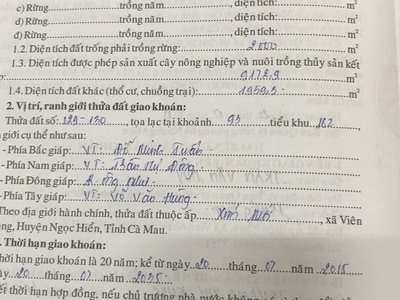 c) Rừng..................trồng năm................., diện tích:..................m²
d) Rừng..................trồng năm................., diện tích:..................m²
đ) Rừng..................trồng năm................., diện tích:..................m²
1.2. Diện tích đất trống phải trồng rừng:.......2000.......m²
1.3. Diện tích được phép sản xuất cây nông nghiệp và nuôi trồng thủy sản kết
p:..............9172,9..............m²
1.4. Diện tích đất khác (thổ cư, chuồng trại):.......1959,3.......m²
2. Vị trí, ranh giới thửa đất giao khoán:
Thửa đất số: 129-130, tọa lạc tại khoảnh 93 tiểu khu 162,
giới cụ thể như sau:
- Phía Bắc giáp: VT: Đỗ Minh Tuấn
- Phía Nam giáp: VT: Trần
- Phía Đông giáp:
- Phía Tây giáp: VT: Võ Văn Hùng
Theo địa giới hành chính, thửa đất thuộc ấp Xóm Mới, xã Viên
ông, Huyện Ngọc Hiển, Tỉnh Cà Mau.
. Thời hạn giao khoán:
Thời hạn giao khoán là 20 năm; kể từ ngày 20 tháng 07 năm 2015
ày 20 tháng 07 năm 2035
ết thời hạn hợp đồng, nếu chủ trương nhà nước không